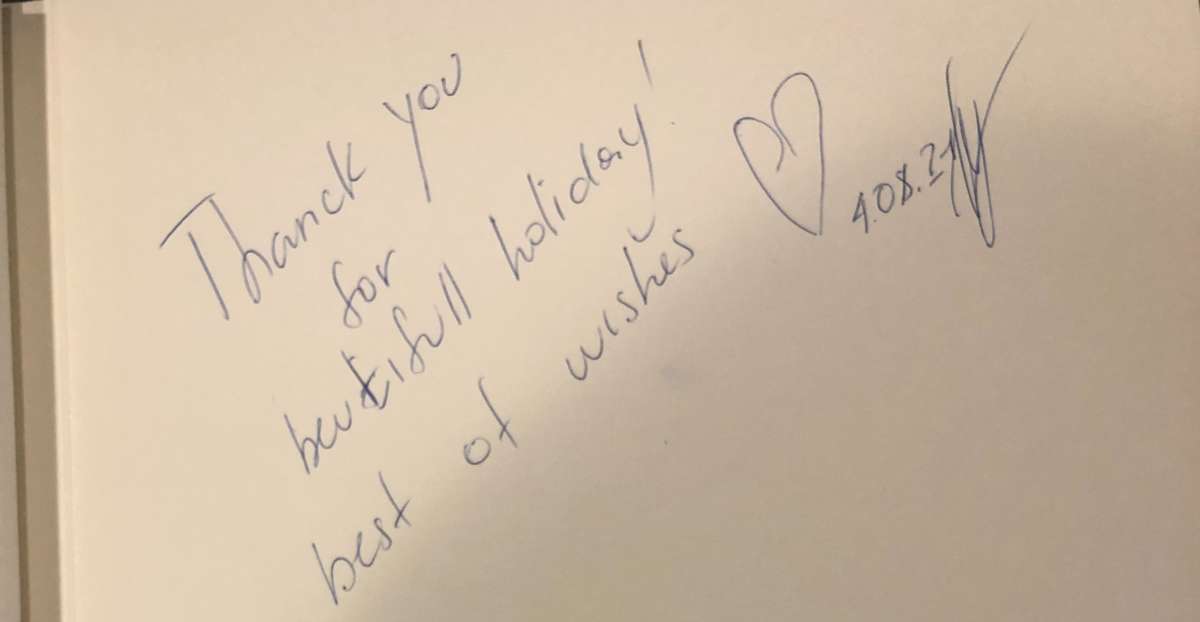 Thanck you
for
beutifull holiday!
best of wishes
4.08.21